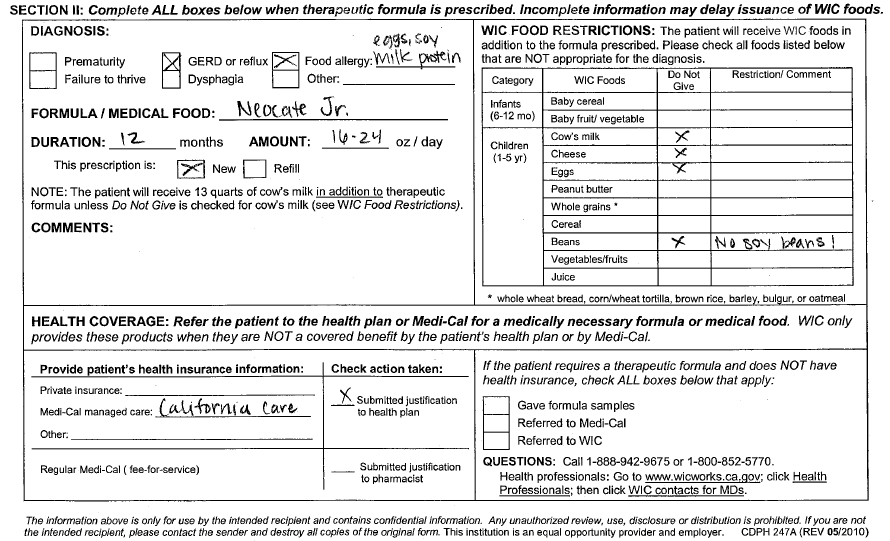 SECTION II: Complete ALL boxes below when therapeutic formula is prescribed. Incomplete information may delay issuance of WIC foods.
DIAGNOSIS:
eggs, soy
Prematurity GERD or reflux Food allergy: milk protein
Failure to thrive Dysphagia Other:
FORMULA / MEDICAL FOOD: Neocate Jr.
DURATION: 12 months AMOUNT: 16-24 oz / day
This prescription is: New Refill
NOTE: The patient will receive 13 quarts of cow's milk in addition to therapeutic
formula unless Do Not Give is checked for cow's milk (see WIC Food Restrictions).
COMMENTS:
WIC FOOD RESTRICTIONS: The patient will receive WIC foods in
addition to the formula prescribed. Please check all foods listed below
that are NOT appropriate for the diagnosis.
Category WIC Foods Do Not Give Restriction/ Comment
Infants (6-12 mo) Baby cereal
Baby fruit/ vegetable
Children (1-5 yr) Cow's milk X
Cheese X
Eggs X
Peanut butter
Whole grains *
Cereal
Beans X No soy beans!
Vegetables/fruits
Juice
* whole wheat bread, corn/wheat tortilla, brown rice, barley, bulgur, or oatmeal
HEALTH COVERAGE: Refer the patient to the health plan or Medi-Cal for a medically necessary formula or medical food. WIC only
provides these products when they are NOT a covered benefit by the patient's health plan or by Medi-Cal.
Provide patient's health insurance information: Check action taken:
Private insurance:
Medi-Cal managed care: California Care X Submitted justification
to health plan
Other:
Regular Medi-Cal ( fee-for-service) Submitted justification
to pharmacist
If the patient requires a therapeutic formula and does NOT have
health insurance, check ALL boxes below that apply:
Gave formula samples
Referred to Medi-Cal
Referred to WIC
QUESTIONS: Call 1-888-942-9675 or 1-800-852-5770.
Health professionals: Go to www.wicworks.ca.gov; click Health
Professionals; then click WIC contacts for MDs.
The information above is only for use by the intended recipient and contains confidential information. Any unauthorized review, use, disclosure or distribution is prohibited. If you are not
the intended recipient, please contact the sender and destroy all copies of the original form. This institution is an equal opportunity provider and employer. CDPH 247A (REV 05/2010)